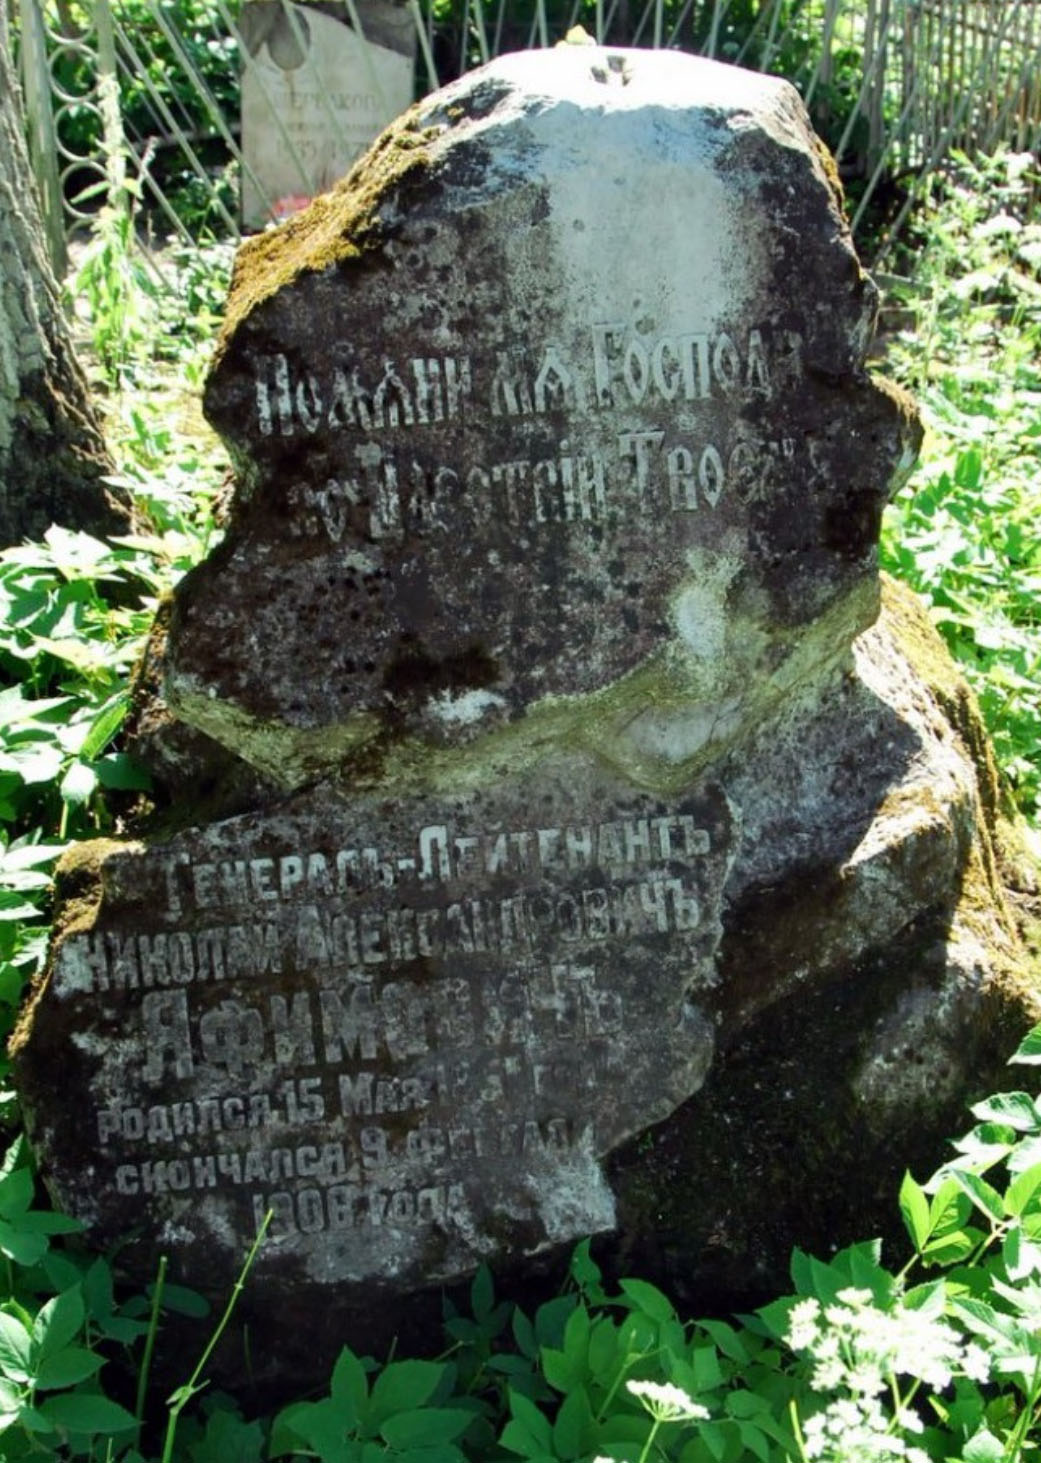 ЩЕРБАКОВ
Помѧни мѧ Господи
во Царствіи Твоемъ
Генералъ-Лейтенантъ
Николай Александровичъ
Яфимовичъ
родился 15 Мая года
скончался 9 февраля
1908 года